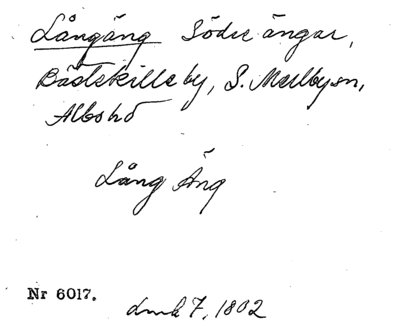 Långäng Södre ängar,
Bästekille by, S. Mellby sn,
Albo hd
Lång Äng
Nr 6017.
7, 1802